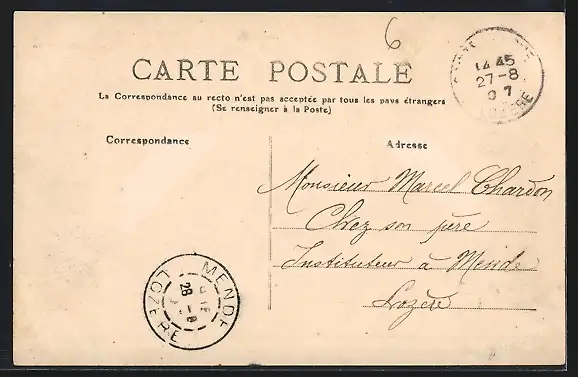 6
CARTE POSTALE
La Correspondance au recto n'est pas acceptée par tous les pays étrangers
(Se renseigner à la Poste)
14 45
27-8
07
LOZERE
Correspondance
Adresse
Monsieur Marcel Chardon
Chez son père
Instituteur à Mende
Lozère
MENDE
28 -8
LOZERE